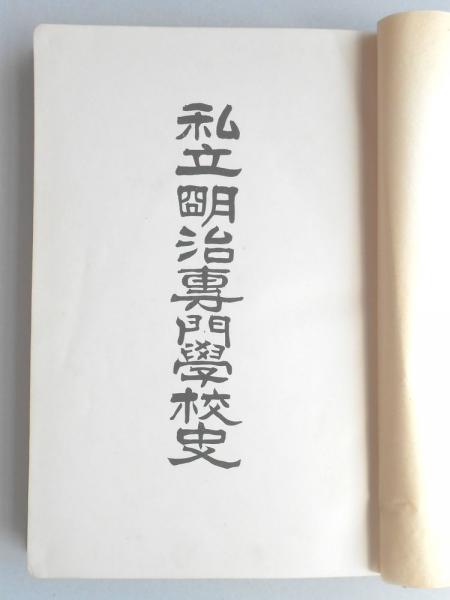 私立明治專門學校史